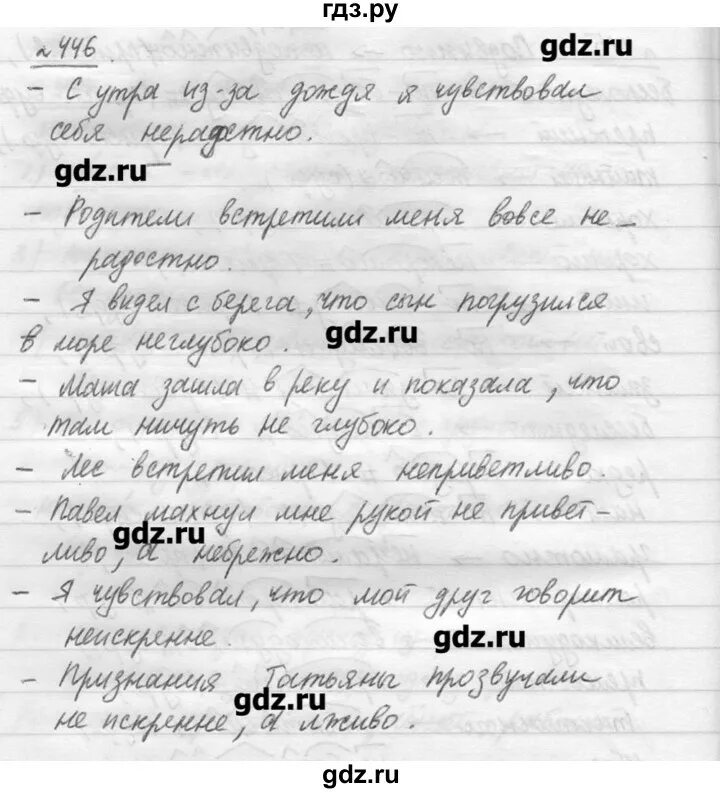 гдз.ру
№446.
gdz.ru
- С утра из-за дождя я чувствовал
себя нерадостно.
gdz.ru
- Родители встретили меня вовсе не
радостно.
- Я видел с берега, что сын погрузился
в море неглубоко.
gdz.ru
- Маша зашла в реку и показала, что
там ничуть не глубоко.
- Лес встретил меня неприветливо.
- Павел махнул мне рукой не привет-
ливо, а небрежно.
gdz.ru
- Я чувствовал, что мой друг говорит
неискренне.
gdz.ru
- Признания Татьяны прозвучали
gdz.ru
не искренне, а лживо.
gdz.ru